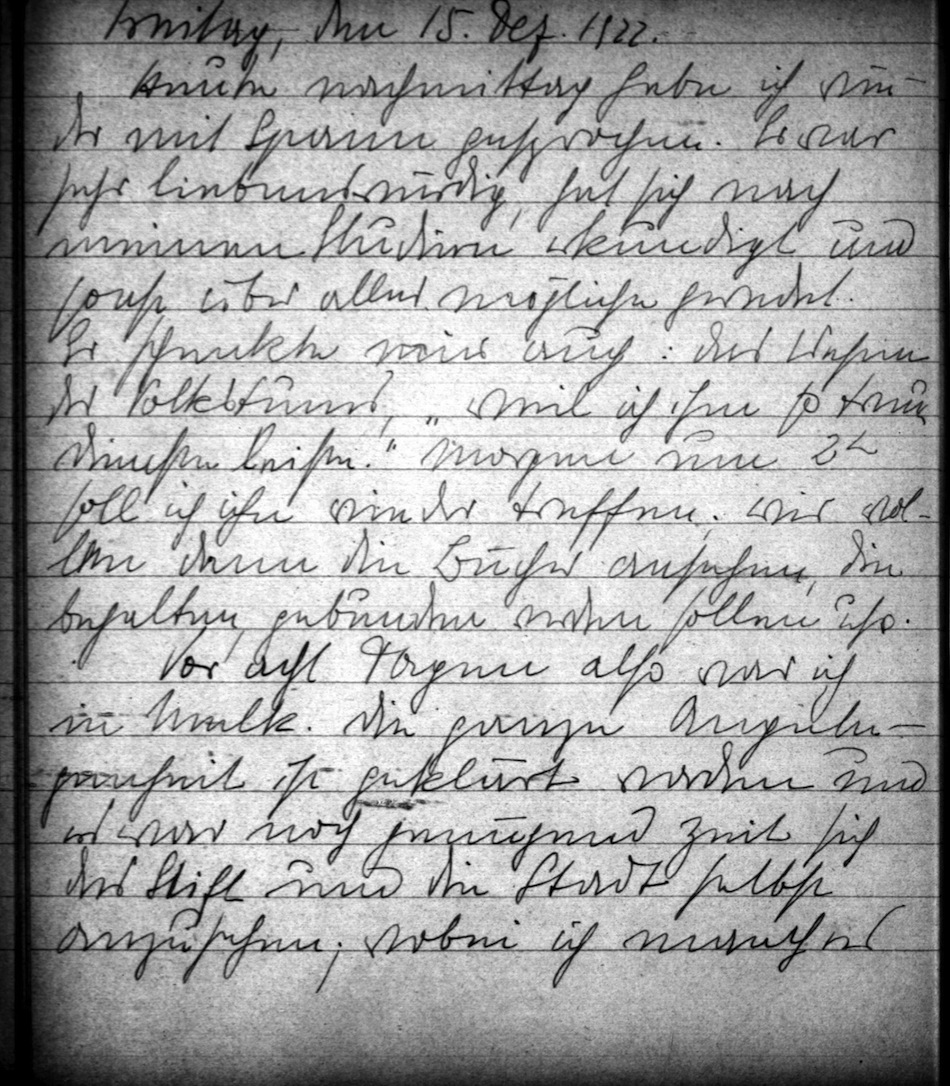 Freitag, den 15. Dez. 1922.
Heute nachmittag habe ich wie-
der mit Spann gesprochen. Er war
sehr liebenswürdig, hat sich nach
meinen Studien erkundigt und
sonst über alles mögliche geredet.
Er schenkte mir auch: das Wesen
des Volkstums, „weil ich ihm so treu
dienste leiste.“ Morgen um 2h
soll ich ihn wieder treffen; wir wol-
len dann die Bücher ansehen, die
behalten, gebunden werden sollen usf.
Vor acht Tagen also war ich
in Melk. Die ganze Angele-
genheit ist geklärt worden und
es war noch genügend Zeit sich
das Stift und die Stadt selbst
anzusehen; wobei ich manches